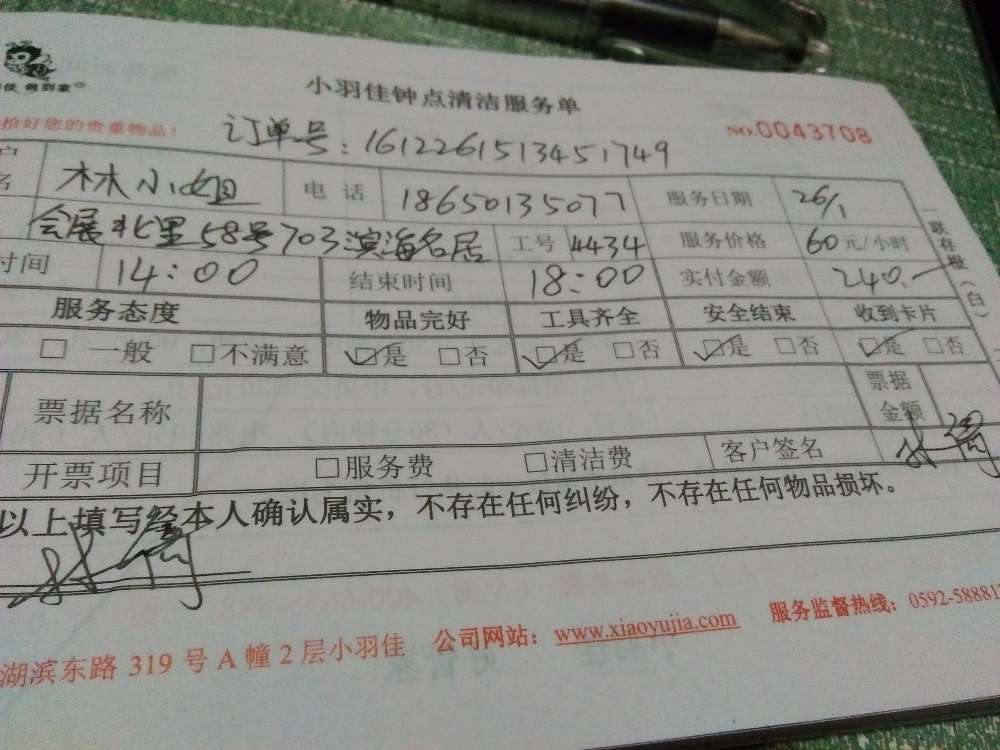 佳 做到家
小羽佳钟点清洁服务单
拾好您的贵重物品!
订单号:1612261513451749
NO.0043708
名 林小姐 电话 18650135077 服务日期 26/1
会展北里58号703滨海名居 工号 4434 服务价格 60元/小时
时间 14:00 结束时间 18:00 实付金额 240.-
一联存根(白)
服务态度 物品完好 工具齐全 安全结束 收到卡片
□ 一般 □不满意 ☑是 □否 ☑是 □否 ☑是 □否 ☑是 □否
票据名称 票据金额
开票项目 □服务费 □清洁费 客户签名
以上填写经本人确认属实,不存在任何纠纷,不存在任何物品损坏。
湖滨东路 319 号 A 幢 2 层小羽佳 公司网站:www.xiaoyujia.com 服务监督热线:0592-58881